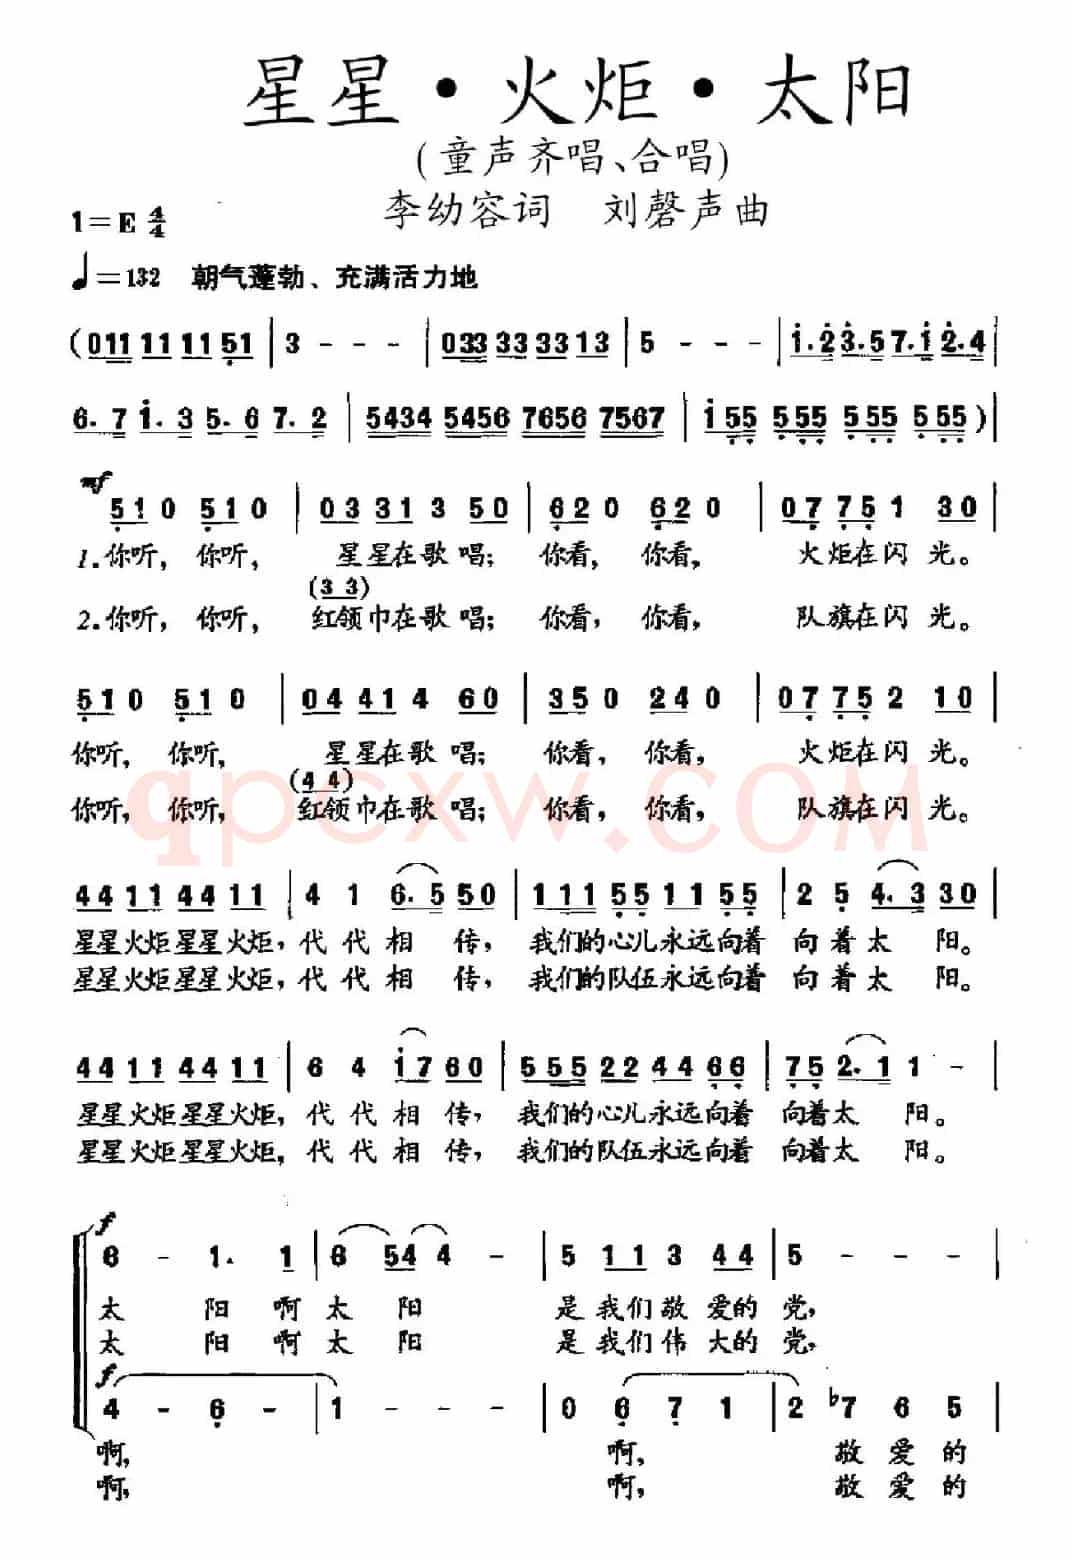 星星·火炬·太阳
(童声齐唱、合唱)
李幼容词 刘磬声曲
1=E 4/4
♩=132 朝气蓬勃、充满活力地
(011 11 11 51 | 3 - - - | 033 33 33 13 | 5 - - - | i.2 3.5 7.i 2.4 |
6.7 i.3 5.6 7.2 | 5434 5456 7656 7567 | i55 555 555 555) |
mf
510 510 | 03 31 3 50 | 620 620 | 07 75 1 30 |
1.你听, 你听, 星星在歌唱; 你看, 你看, 火炬在闪光。
(3 3)
2.你听, 你听, 红领巾在歌唱; 你看, 你看, 队旗在闪光。
510 510 | 04 41 4 60 | 350 240 | 07 75 2 10 |
你听, 你听, 星星在歌唱; 你看, 你看, 火炬在闪光。
(4 4)
你听, 你听, 红领巾在歌唱; 你看, 你看, 队旗在闪光。
qpcxw.COM
44 11 44 11 | 4 1 6.5 50 | 111 55 11 55 | 2 5 4.3 30 |
星星火炬星星火炬, 代代相传, 我们的心儿永远向着 向着太阳。
星星火炬星星火炬, 代代相传, 我们的队伍永远向着 向着太阳。
44 11 44 11 | 6 4 i7 60 | 555 22 44 66 | 75 2.1 1 - |
星星火炬星星火炬, 代代相传, 我们的心儿永远向着 向着太阳。
星星火炬星星火炬, 代代相传, 我们的队伍永远向着 向着太阳。
f
6 - 1. 1 | 6 54 4 - | 5 11 3 44 | 5 - - - |
太阳啊太阳 是我们敬爱的党,
太阳啊太阳 是我们伟大的党,
f
4 - 6 - | 1 - - - | 0 6 7 1 | 2 ♭7 6 5 |
啊, 啊, 敬爱的
啊, 啊, 敬爱的